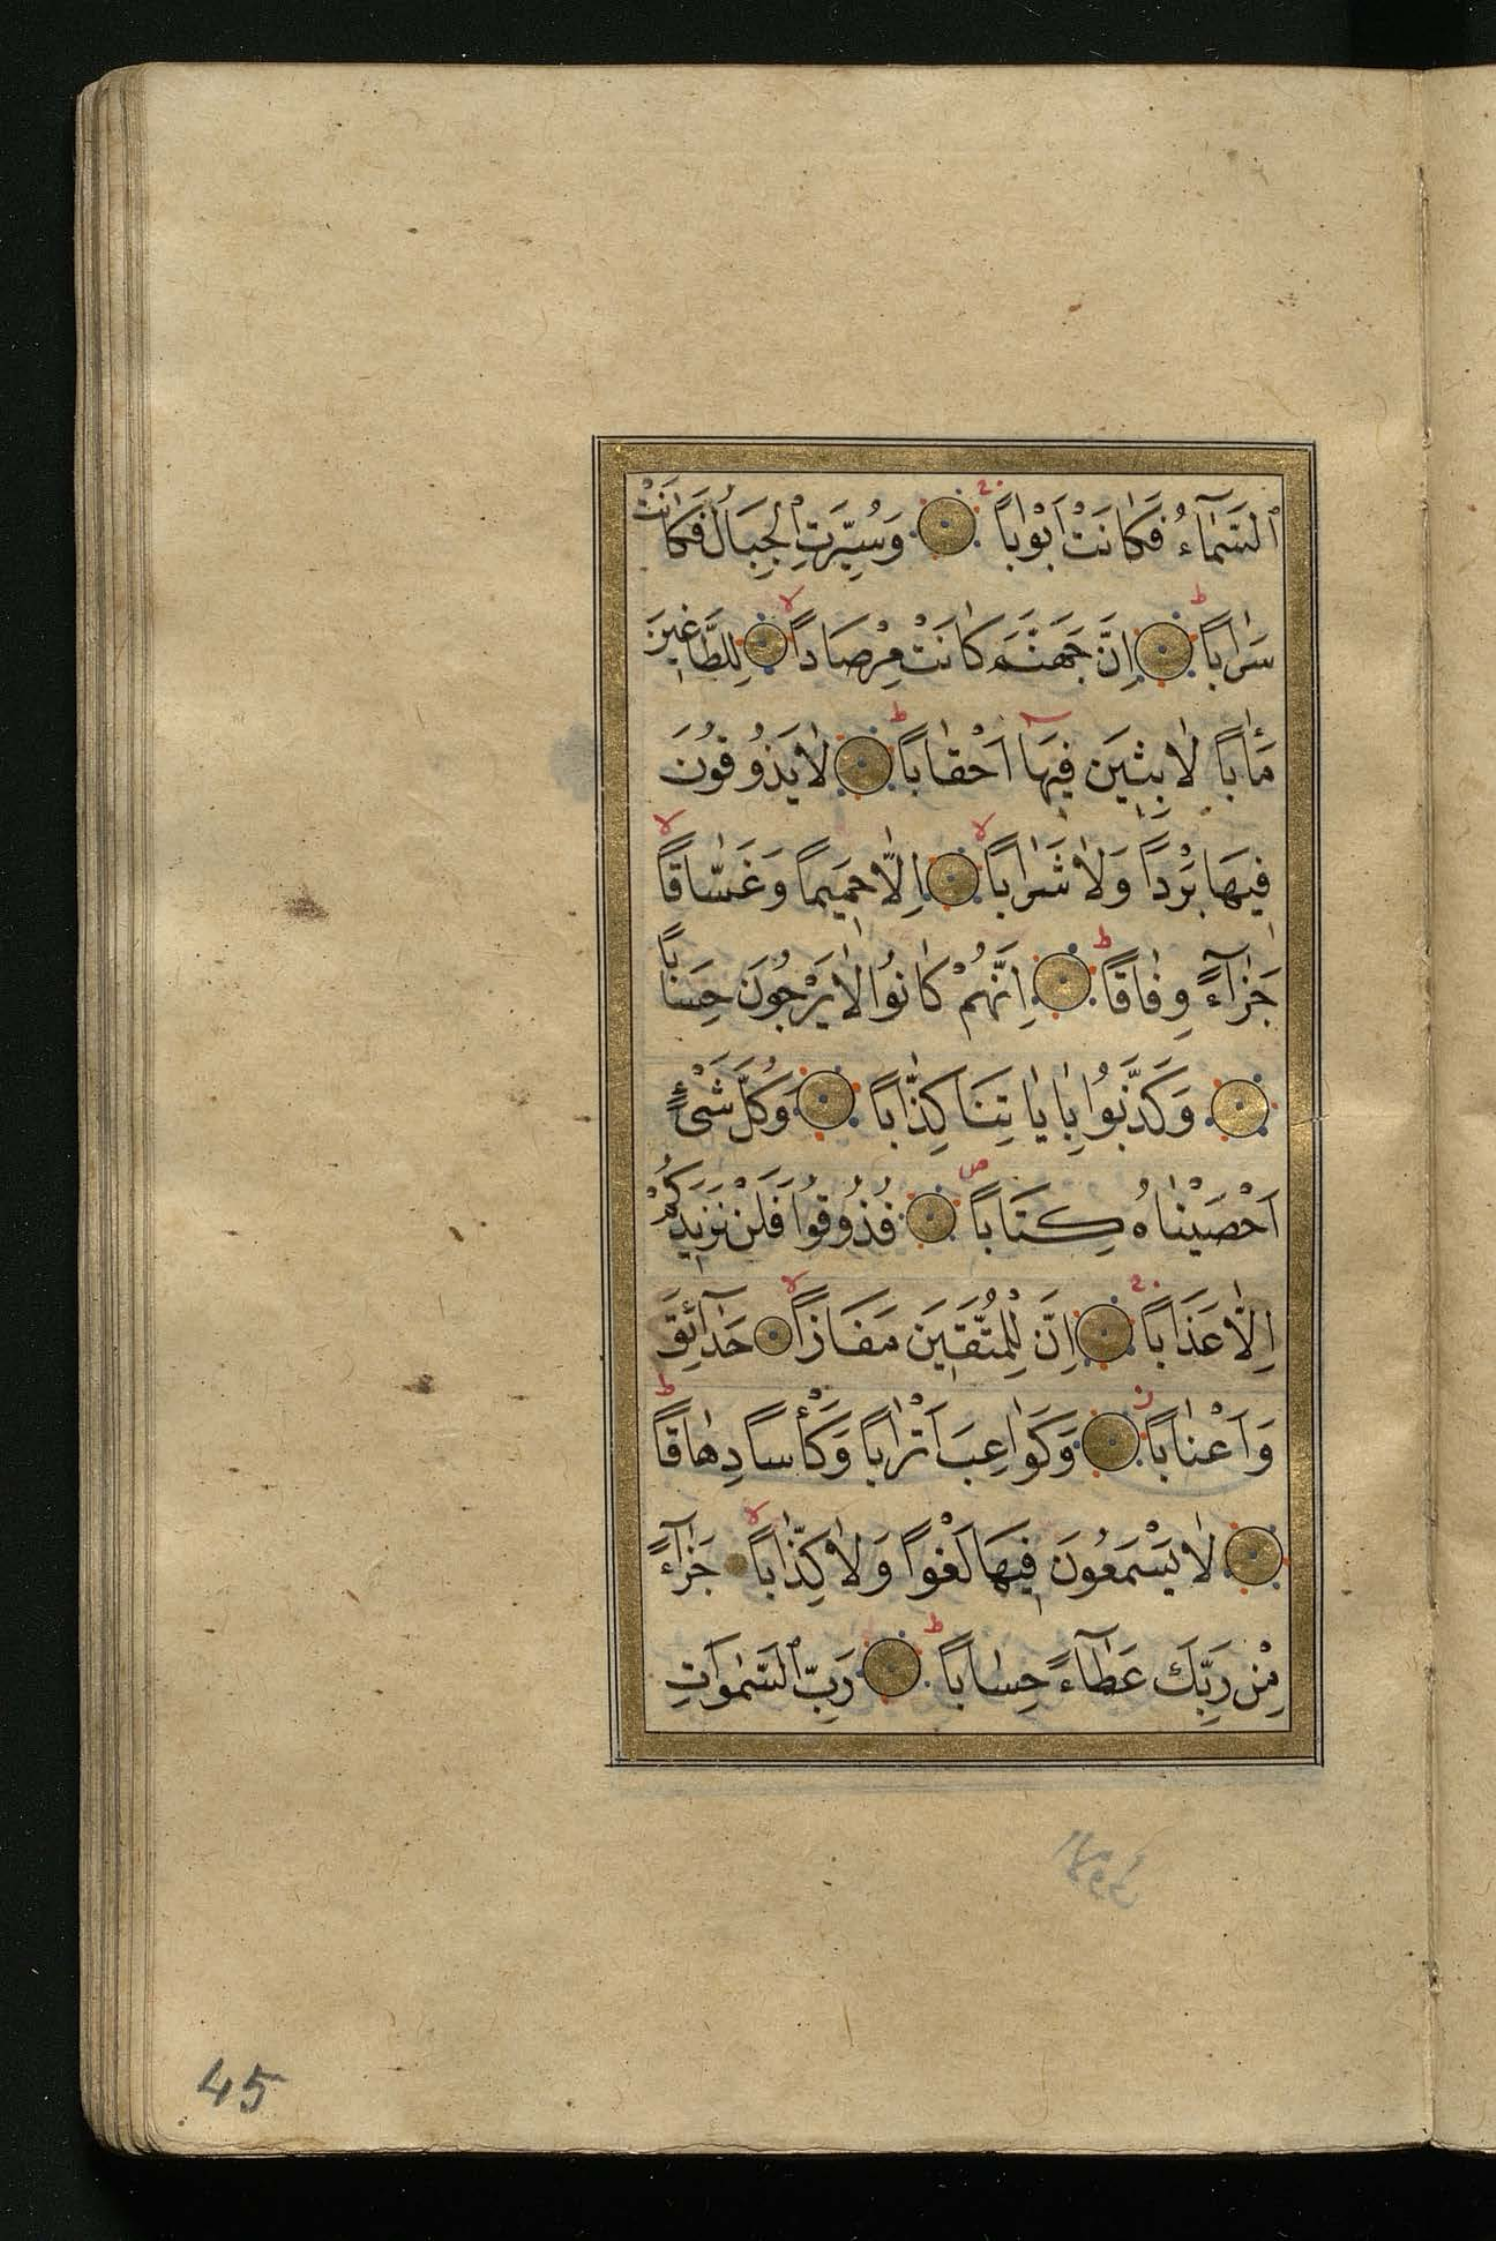 ٱلسَّمَآءُ فَكَانَتْ اَبْوٰاباً وَسُيِّرَتِ ٱلْجِبَالُ فَكَانَتْ
سَرٰاباً اِنَّ جَهَنَّمَ كَانَتْ مِرْصَاداً لِلطَّاغِينَ
مَـٔاباً لاٰبِثِينَ فِيهَآ اَحْقٰاباً لاٰ يَذُوقُونَ
فِيهَا بَرْداً وَلاٰ شَرٰاباً اِلّٰا حَمِيماً وَغَسّٰاقاً
جَزٰآءً وِفٰاقاً اِنَّهُمْ كٰانُوا لاٰ يَرْجُونَ حِسٰاباً
وَكَذَّبُوا بِاٰيٰاتِنَا كِذّٰاباً وَكُلَّ شَىْءٍ
اَحْصَيْنٰاهُ كِتَاباً فَذُوقُوا فَلَنْ نَزِيدَكُمْ
اِلّٰا عَذَاباً اِنَّ لِلْمُتَّقِينَ مَفَازاً حَدٰآئِقَ
وَاَعْنٰاباً وَكَوٰاعِبَ اَتْرٰاباً وَكَأْساً دِهٰاقاً
لاٰ يَسْمَعُونَ فِيهَا لَغْواً وَلاٰ كِذّٰاباً جَزٰآءً
مِنْ رَبِّكَ عَطٰآءً حِسٰاباً رَبِّ ٱلسَّمٰوَاتِ
45